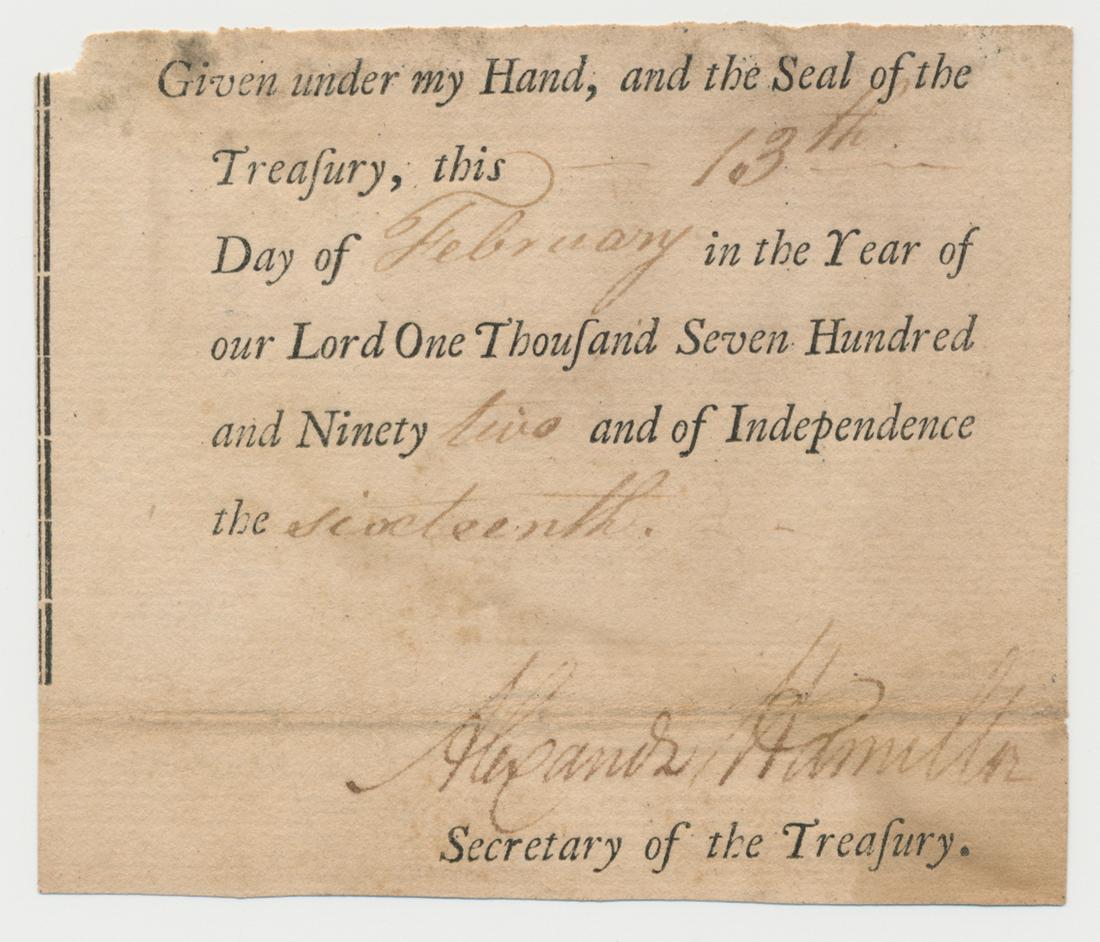 Given under my Hand, and the Seal of the
Treaſury, this — 13th. —
Day of February in the Year of
our Lord One Thouſand Seven Hundred
and Ninety two and of Independence
the sixteenth. -
Alexander Hamilton
Secretary of the Treaſury.